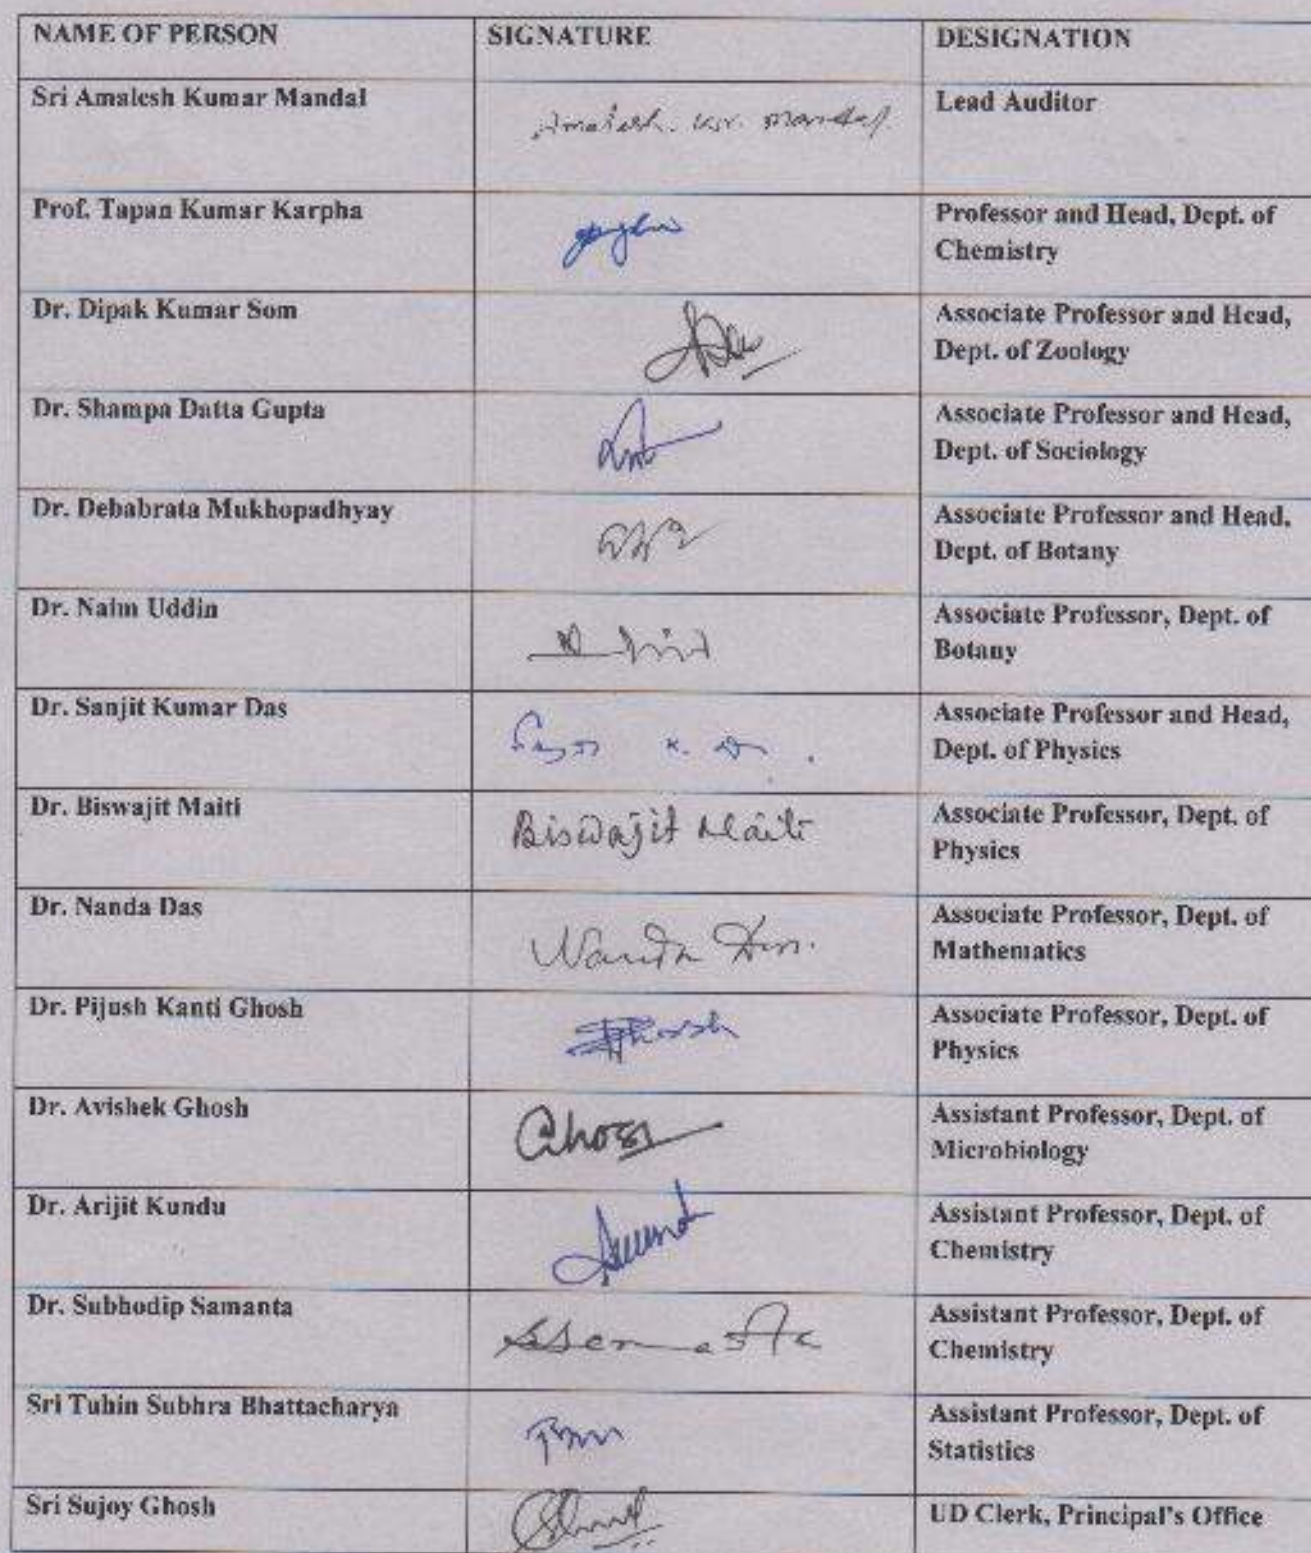 NAME OF PERSON SIGNATURE DESIGNATION
Sri Amalesh Kumar Mandal Lead Auditor
Amalesh. Kr. Mandal
Prof. Tapan Kumar Karpha Professor and Head, Dept. of
Chemistry
Dr. Dipak Kumar Som Associate Professor and Head,
Dept. of Zoology
Dr. Shampa Datta Gupta Associate Professor and Head,
Dept. of Sociology
Dr. Debabrata Mukhopadhyay Associate Professor and Head,
Dept. of Botany
Dr. Naim Uddin Associate Professor, Dept. of
Botany
Dr. Sanjit Kumar Das Associate Professor and Head,
Dept. of Physics
Dr. Biswajit Maiti Biswajit Maiti Associate Professor, Dept. of
Physics
Dr. Nanda Das Associate Professor, Dept. of
Nanda Das. Mathematics
Dr. Pijush Kanti Ghosh Associate Professor, Dept. of
Physics
Dr. Avishek Ghosh Assistant Professor, Dept. of
Ghosh Microbiology
Dr. Arijit Kundu Assistant Professor, Dept. of
Chemistry
Dr. Subhodip Samanta Assistant Professor, Dept. of
SSamanta Chemistry
Sri Tuhin Subhra Bhattacharya Assistant Professor, Dept. of
Statistics
Sri Sujoy Ghosh UD Clerk, Principal's Office